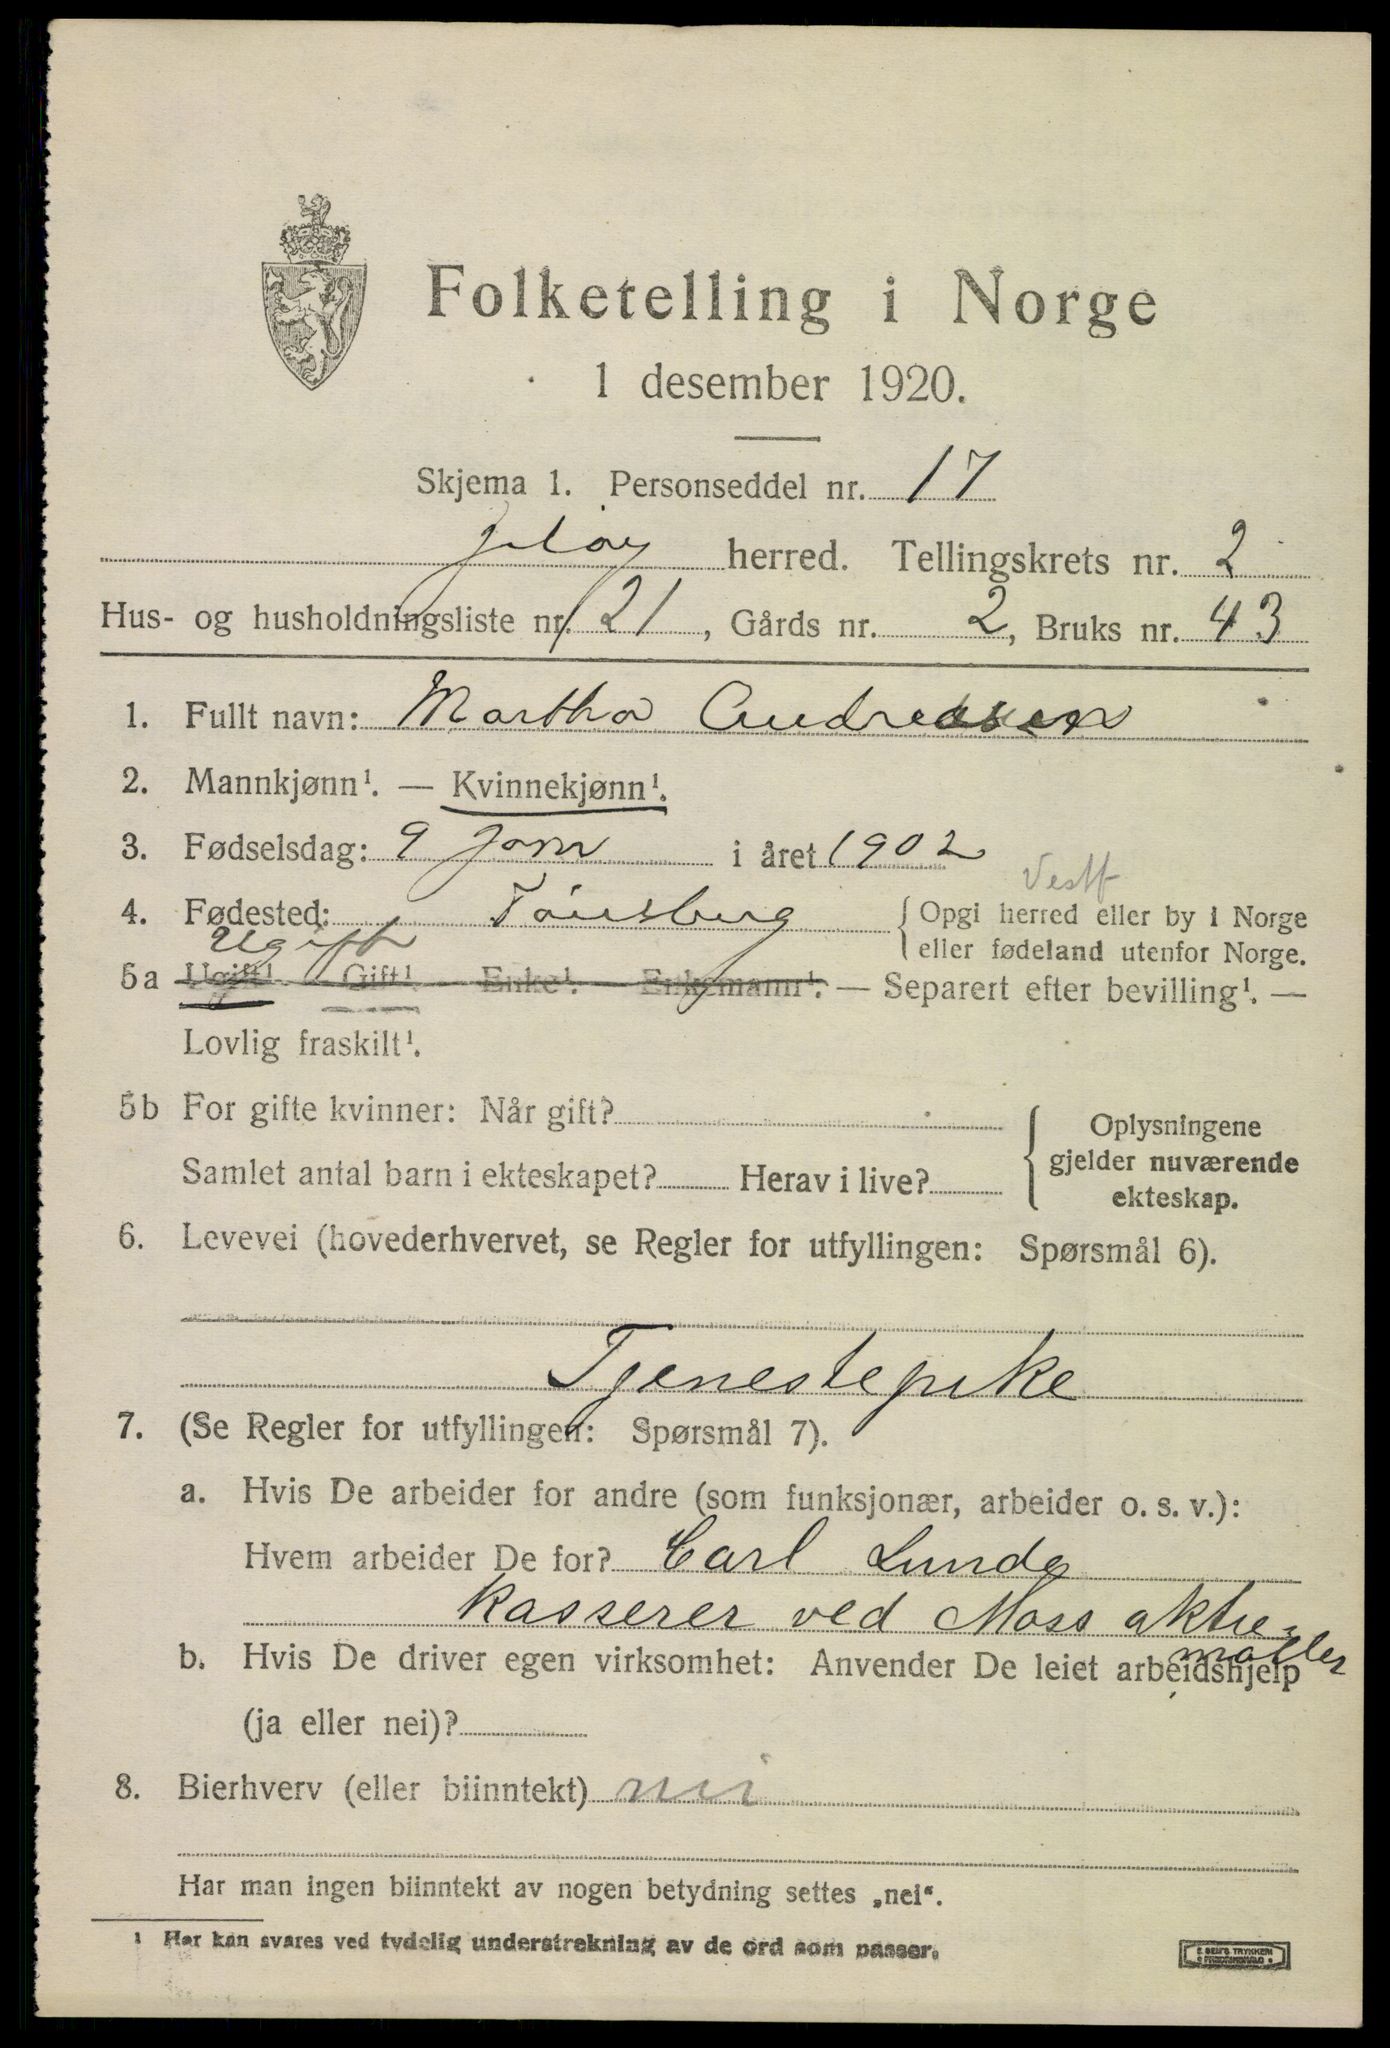 Folketelling i Norge
1 desember 1920.
Skjema 1. Personseddel nr. 17
Jeløy herred. Tellingskrets nr. 2
Hus- og husholdningsliste nr. 21, Gårds nr. 2, Bruks nr. 43
1. Fullt navn: Martha Andreasen
2. Mannkjønn¹. — Kvinnekjønn¹.
3. Fødselsdag: 9 Janr i året 1902
Vestf
4. Fødested: Tönsberg { Opgi herred eller by i Norge
eller fødeland utenfor Norge.
Ugift
5a Ugift¹. Gift¹. — Enke¹. — Enkemann¹. — Separert efter bevilling¹. —
Lovlig fraskilt¹.
5b For gifte kvinner: Når gift? { Oplysningene
gjelder nuværende
Samlet antal barn i ekteskapet? Herav i live? ekteskap.
6. Levevei (hovederhvervet, se Regler for utfyllingen: Spørsmål 6).
Tjenestepike
7. (Se Regler for utfyllingen: Spørsmål 7).
a. Hvis De arbeider for andre (som funksjonær, arbeider o. s. v.):
Hvem arbeider De for? Carl Lunde
Kasserer ved Moss aktie-
møller
b. Hvis De driver egen virksomhet: Anvender De leiet arbeidshjelp
(ja eller nei)?
8. Bierhverv (eller biinntekt) nei
Har man ingen biinntekt av nogen betydning settes „nei“.
¹ Her kan svares ved tydelig understrekning av de ord som passer.